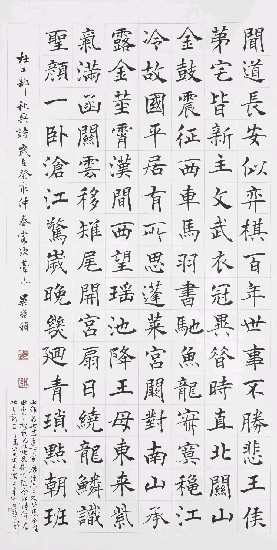 聞道長安似弈棋百年世事不勝悲王侯
苐宅皆新主文武衣冠異昔時直北關山
金鼓震征西車馬羽書馳魚龍寂寞穐江
冷故國平居有所思蓬萊宮闕對南山承
露金莖霄漢間西望瑤池降王母東来紫
氣滿函關雲移雉尾開宮扇日繞龍鱗識
聖顏一卧滄江驚歲晚幾廻青瑣點朝班
杜工部秋興詩歲在癸卯仲春